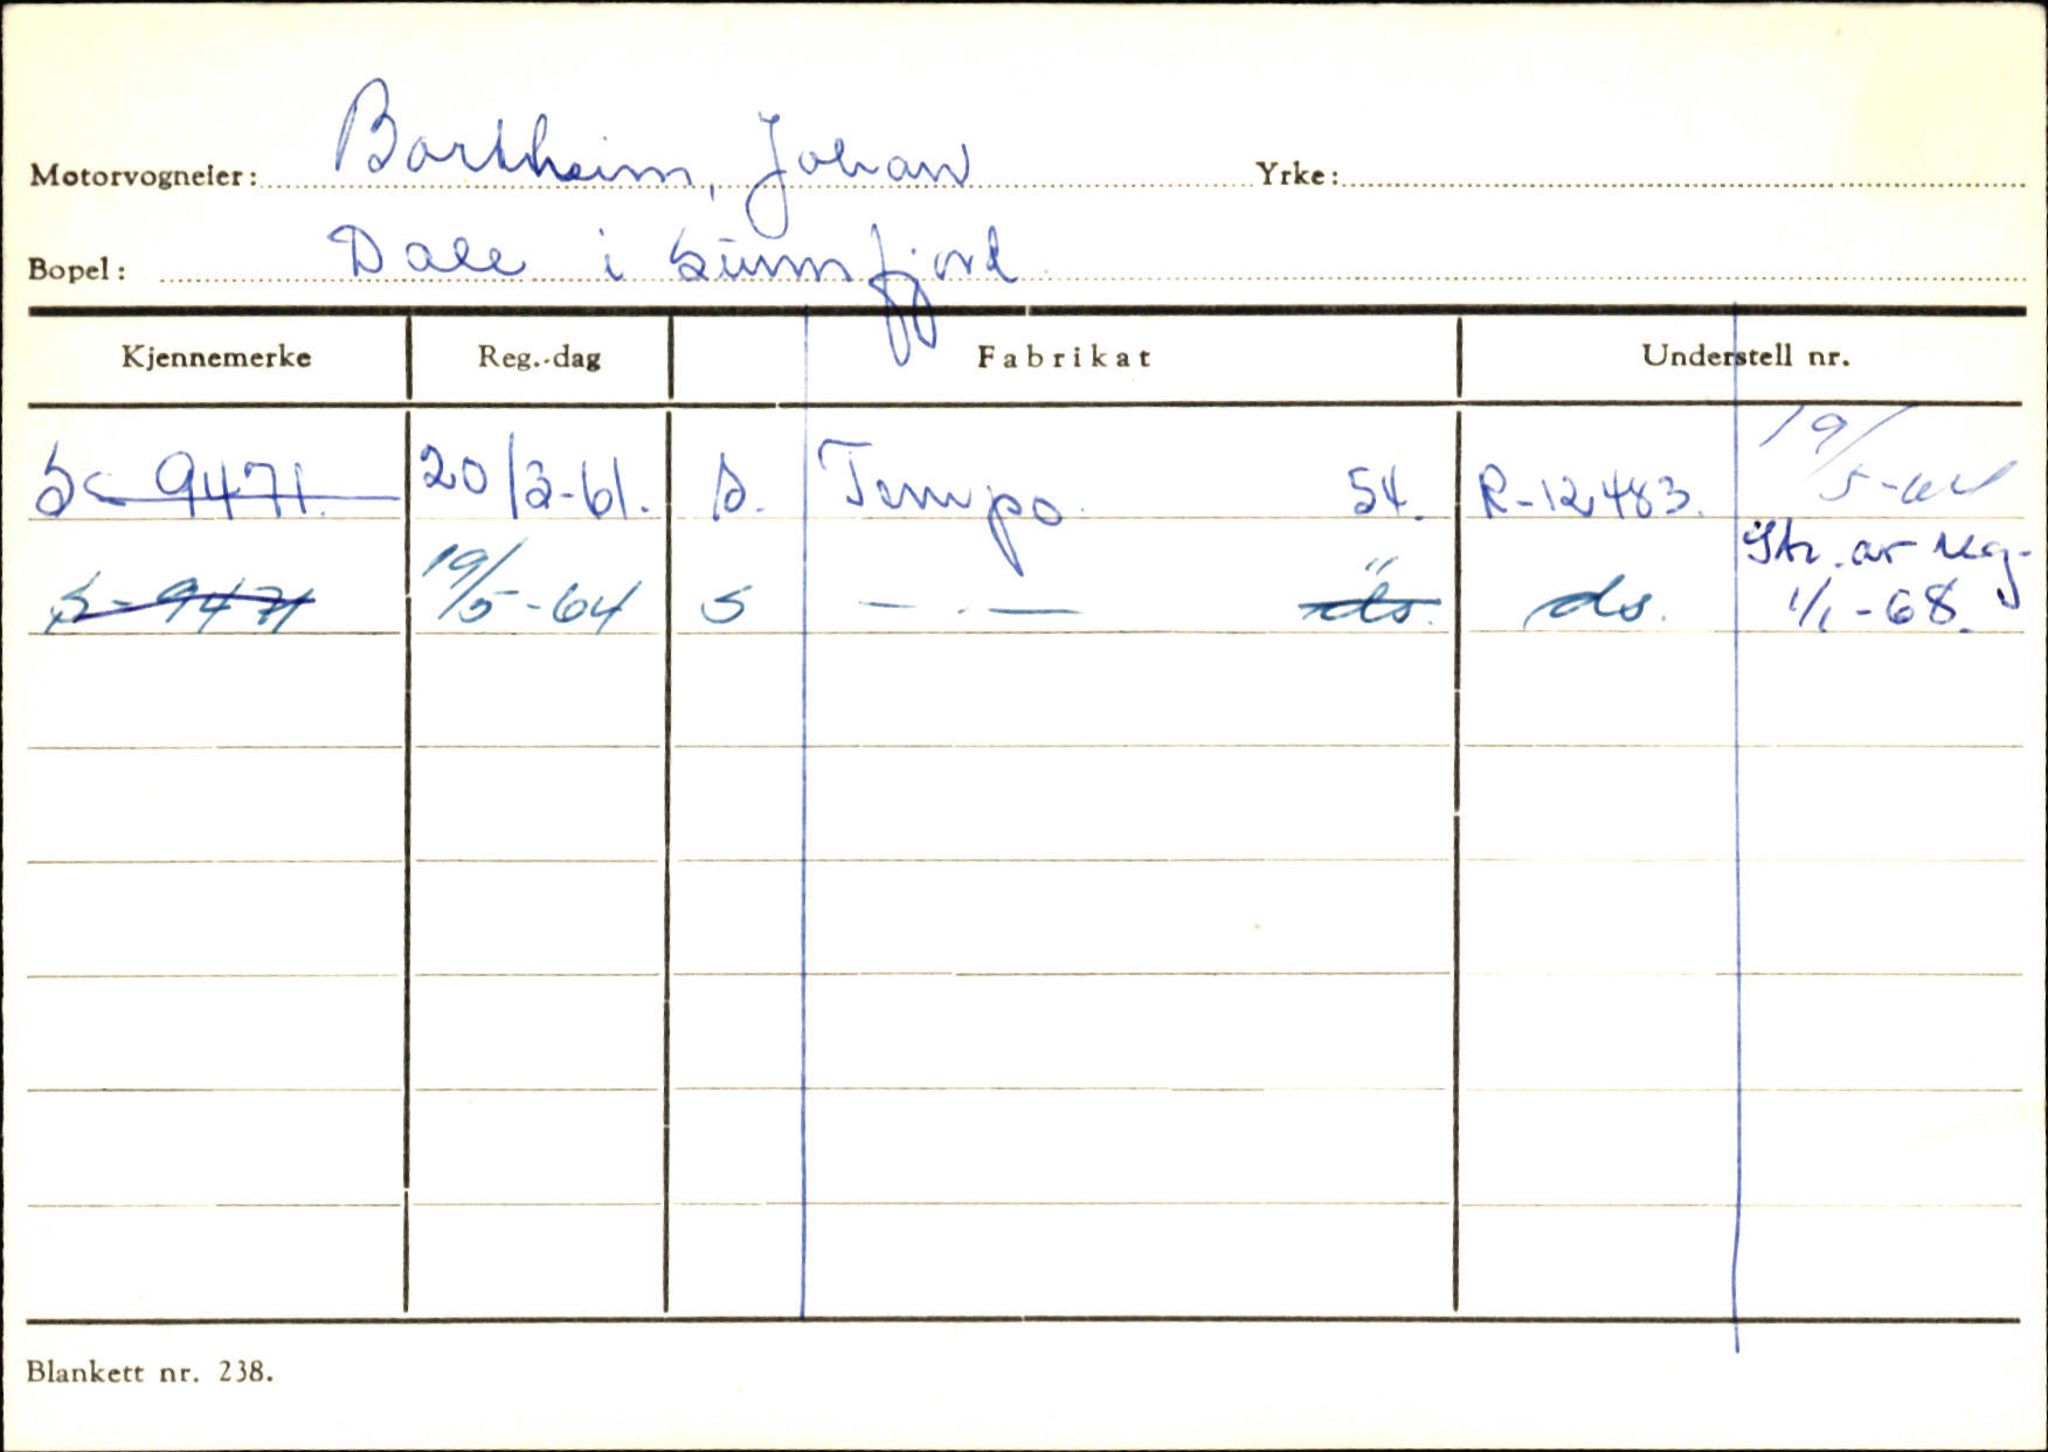 Motorvogneier: Barkheim, Johan Yrke:
Bopel: Dale i Sunnfjord
Kjennemerke Reg.-dag Fabrikat Understell nr.
S- 9471. 20/3-61. S. Tempo 54. R-12483. 19/5-64
S-9471 19/5-64 S — . — " ds. ds. Str. av reg.
1/1-68.
Blankett nr. 238.